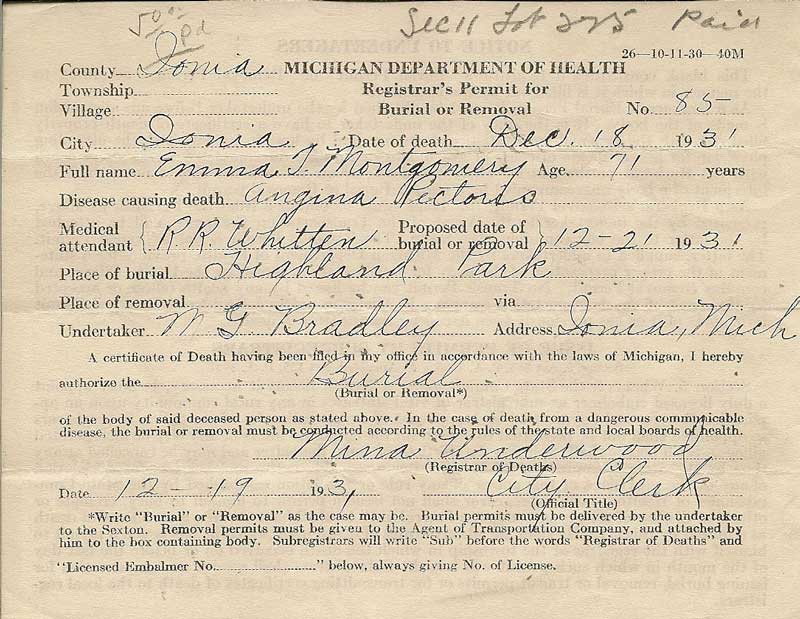 50¢ pd Sec 11 Lot 225 Paid
26—10-11-30—40M
County Ionia MICHIGAN DEPARTMENT OF HEALTH
Township Registrar's Permit for
Village Burial or Removal No. 85
City Ionia Date of death Dec. 18 1931
Full name Emma T. Montgomery Age 71 years
Disease causing death Angina Pectoris
Medical attendant { R.R. Whitten Proposed date of burial or removal } 12-21 1931
Place of burial Highland Park
Place of removal via
Undertaker W G Bradley Address Ionia, Mich
A certificate of Death having been filed in my office in accordance with the laws of Michigan, I hereby
authorize the Burial
(Burial or Removal*)
of the body of said deceased person as stated above. In the case of death from a dangerous communicable
disease, the burial or removal must be conducted according to the rules of the state and local boards of health.
Mina Underwood
(Registrar of Deaths)
Date 12-19 1931 City Clerk
(Official Title)
*Write "Burial" or "Removal" as the case may be. Burial permits must be delivered by the undertaker
to the Sexton. Removal permits must be given to the Agent of Transportation Company, and attached by
him to the box containing body. Subregistrars will write "Sub" before the words "Registrar of Deaths" and
"Licensed Embalmer No. " below, always giving No. of License.